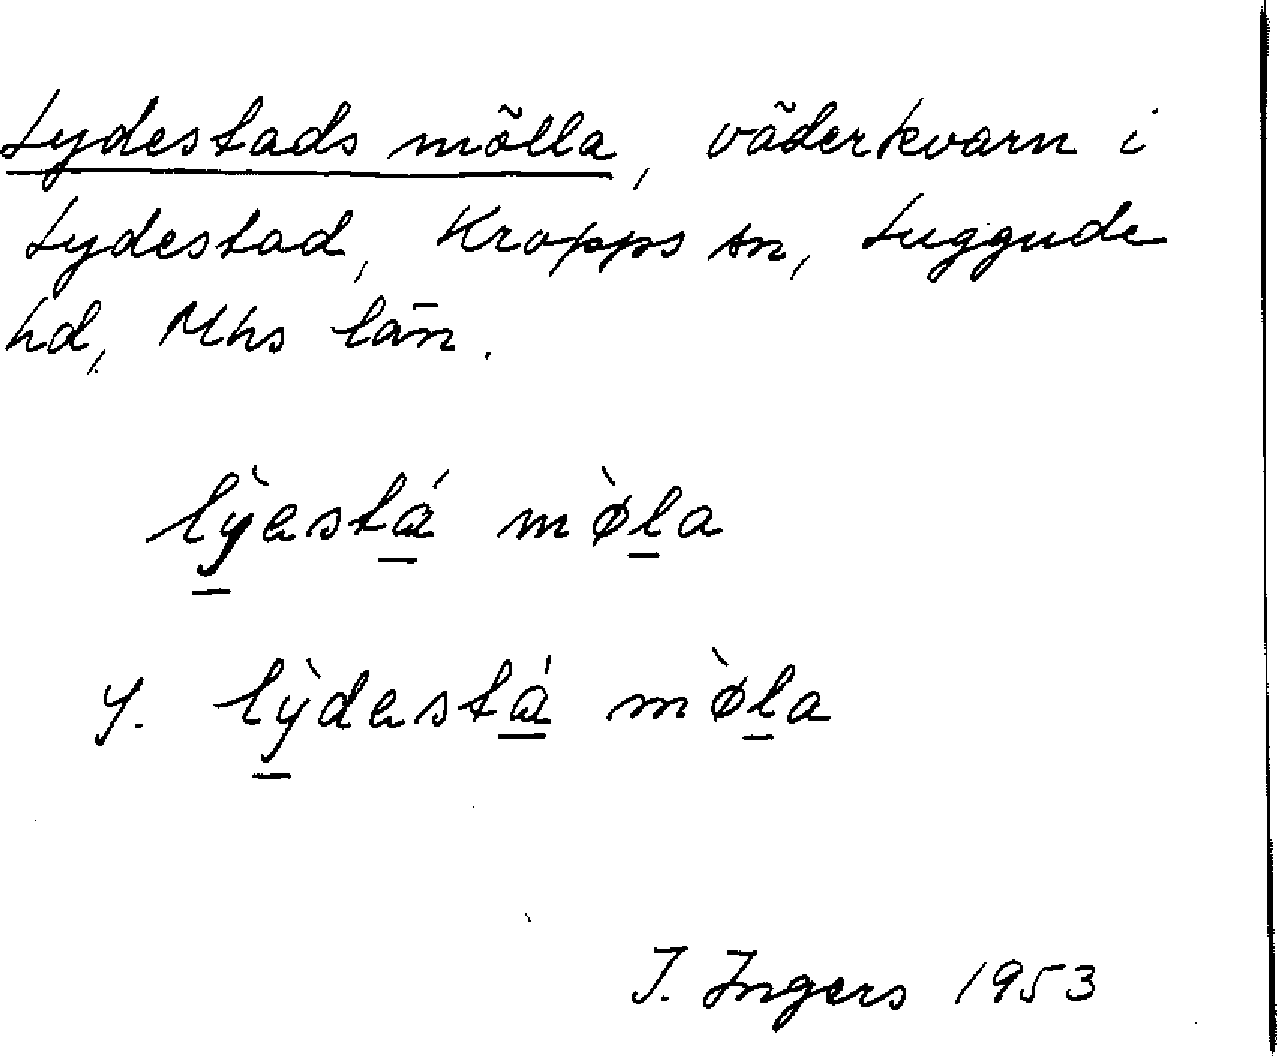 Lydestads mölla, väderkvarn i
Lydestad, Kropps sn, Luggude
hd, Mhs län.
lỳestá mø̀la
y. lỳdestá mø̀la
I. Ingers 1953